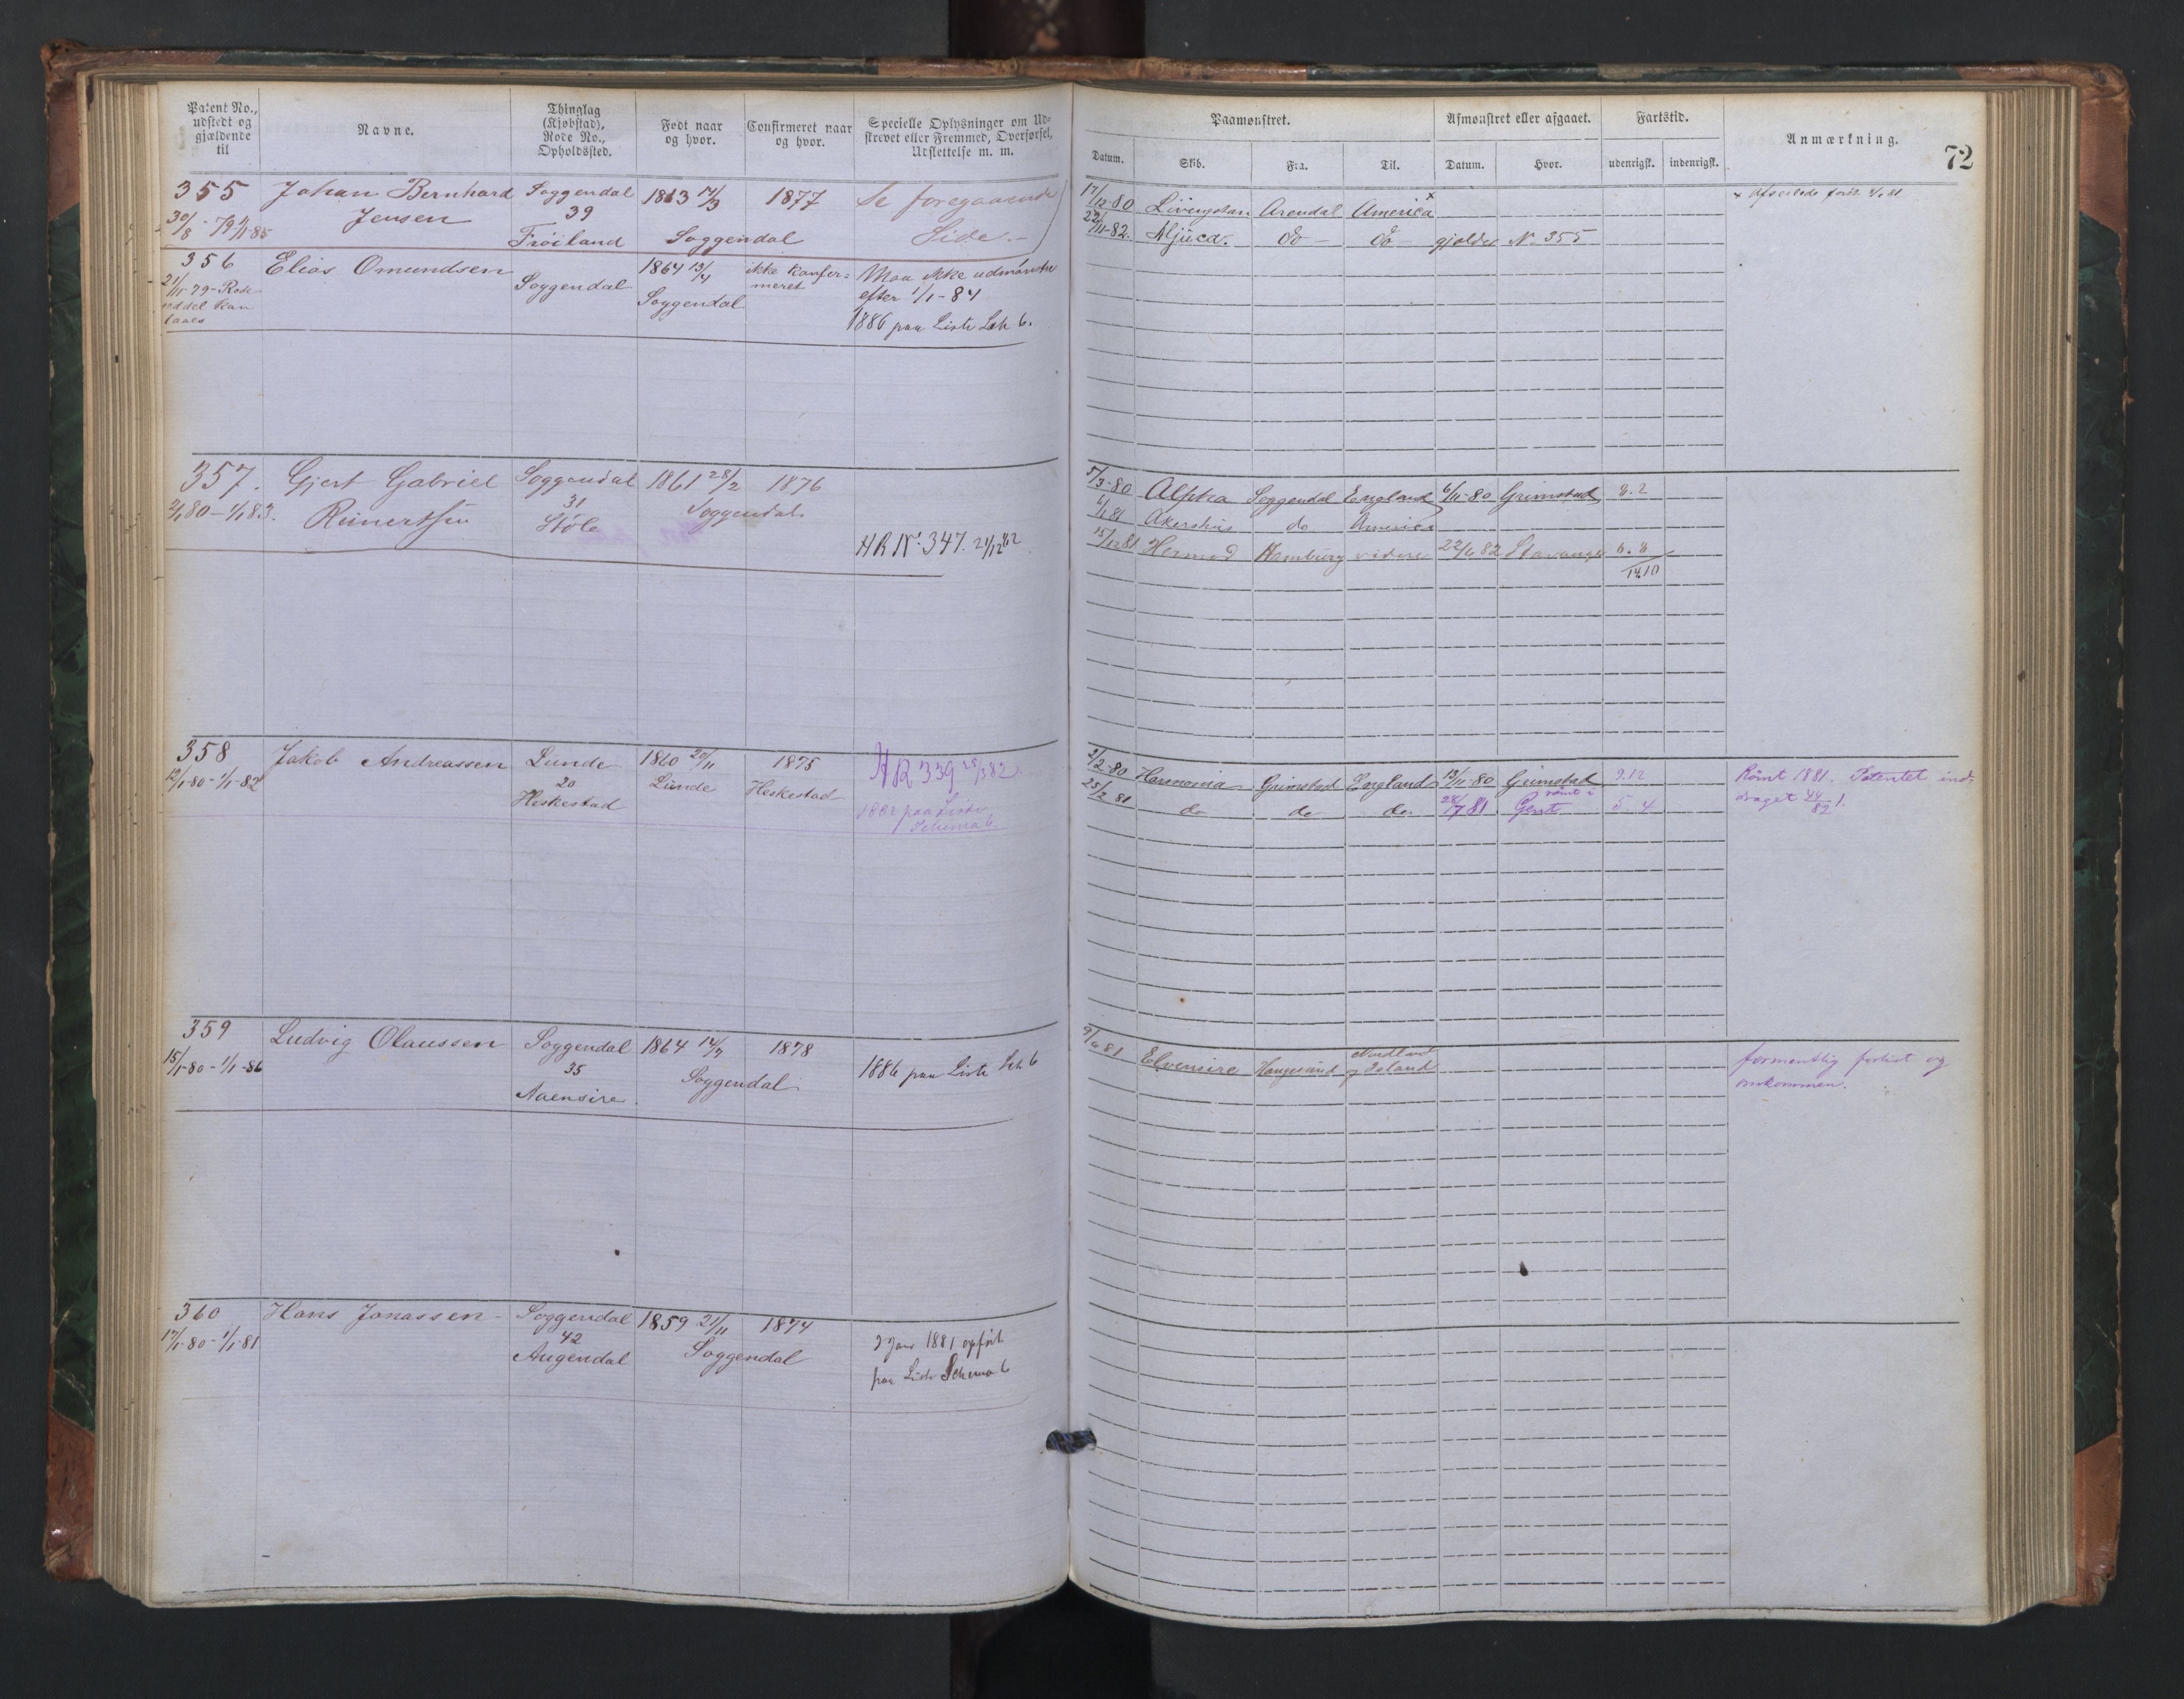 Patent No., udstedt og gjældende til
Navne.
Thinglag (Kjøbstad), Rode No., Opholdssted.
Født naar og hvor.
Confirmeret naar og hvor.
Specielle Oplysninger om Udskrevet eller Fremmed, Overførsel, Udslettelse m. m.
355
Johan Bernhard
Jensen
Soggendal
39
Frøiland
1863 14/3
1877
Soggendal
Se foregaaende
Side.
356
Elias Omundsen
Soggendal
1864 13/4
Soggendal
ikke konfer=
meret
Maa ikke udmønstre
efter 1/1-84
1886 paa Liste Sch 6.
357.
Gjert Gabriel
Reinertsen
Soggendal
31
Støle
1861 28/2
1876
Soggendal
AR No. 347. 21/12 82
358
12/1-80-1/1-82
Jakob Andreassen
Lunde
20
Heskestad
1860 20/11
Lunde
1875
Heskestad
AR 339 25/3 82.
1882 paa Liste
Schema 6.
359
15/1-80-1/1-86
Ludvig Olaussen
Soggendal
35
Aaensire
1864 14/7
1878
Soggendal
1886 paa Liste Sch 6
360
17/1-80-1/1-81
Hans Jonassen
Soggendal
42
Augendal
1859 21/11
1874
Soggendal
1881 opført
paa Liste Schema 6
72
Paamønstret.
Afmønstret eller afgaaet.
Fartstid.
Anmærkning.
Datum.
Skib.
Fra.
Til.
Datum.
Hvor.
udenrigsk.
indenrigsk.
17/12-80 Livingstan Arendal America x
x Afseilede først 4/1 81
22/11-82. Mjuca. do do gjælder No. 355
5/3-80 Alpha Soggendal England 6/11-80 Grimstad 8.2
4/1 81 Akershus do America
15/12 81 Hermod Hamburg videre 22/6 82 Stavanger 6.8
14.10
2/2-80 Harmonia Grimstad England 13/11-80 Grimstad 9.12
25/2 81 do do do 28/7 81 rømt i Gent 5.4
Rømt 1881. Patentet ind-
draget 44/82 1.
9/6 81 Elvensire Haugesund Nordland
og Island
formentlig forlist og
omkommen.